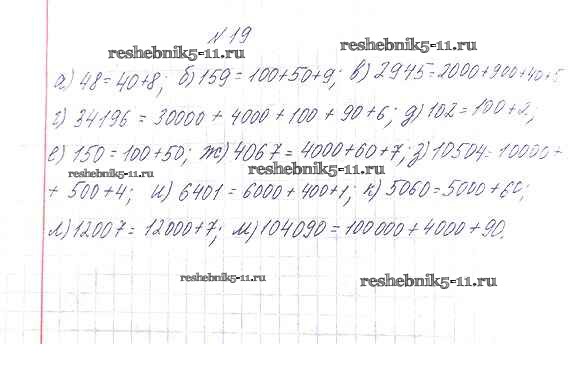 № 19
reshebnik5-11.ru
reshebnik5-11.ru
а) 48 = 40+8; б) 159 = 100+50+9; в) 2945 = 2000+900+40+5
г) 34196 = 30000 + 4000 + 100 + 90 + 6; д) 102 = 100 + 2;
е) 150 = 100+50; ж) 4067 = 4000+60+7; з) 10504 = 10000+
reshebnik5-11.ru
reshebnik5-11.ru
+ 500 + 4; и) 6401 = 6000 + 400+1; к) 5060 = 5000 + 60;
л) 12007 = 12000 + 7; м) 104090 = 100000 + 4000 + 90.
reshebnik5-11.ru
reshebnik5-11.ru